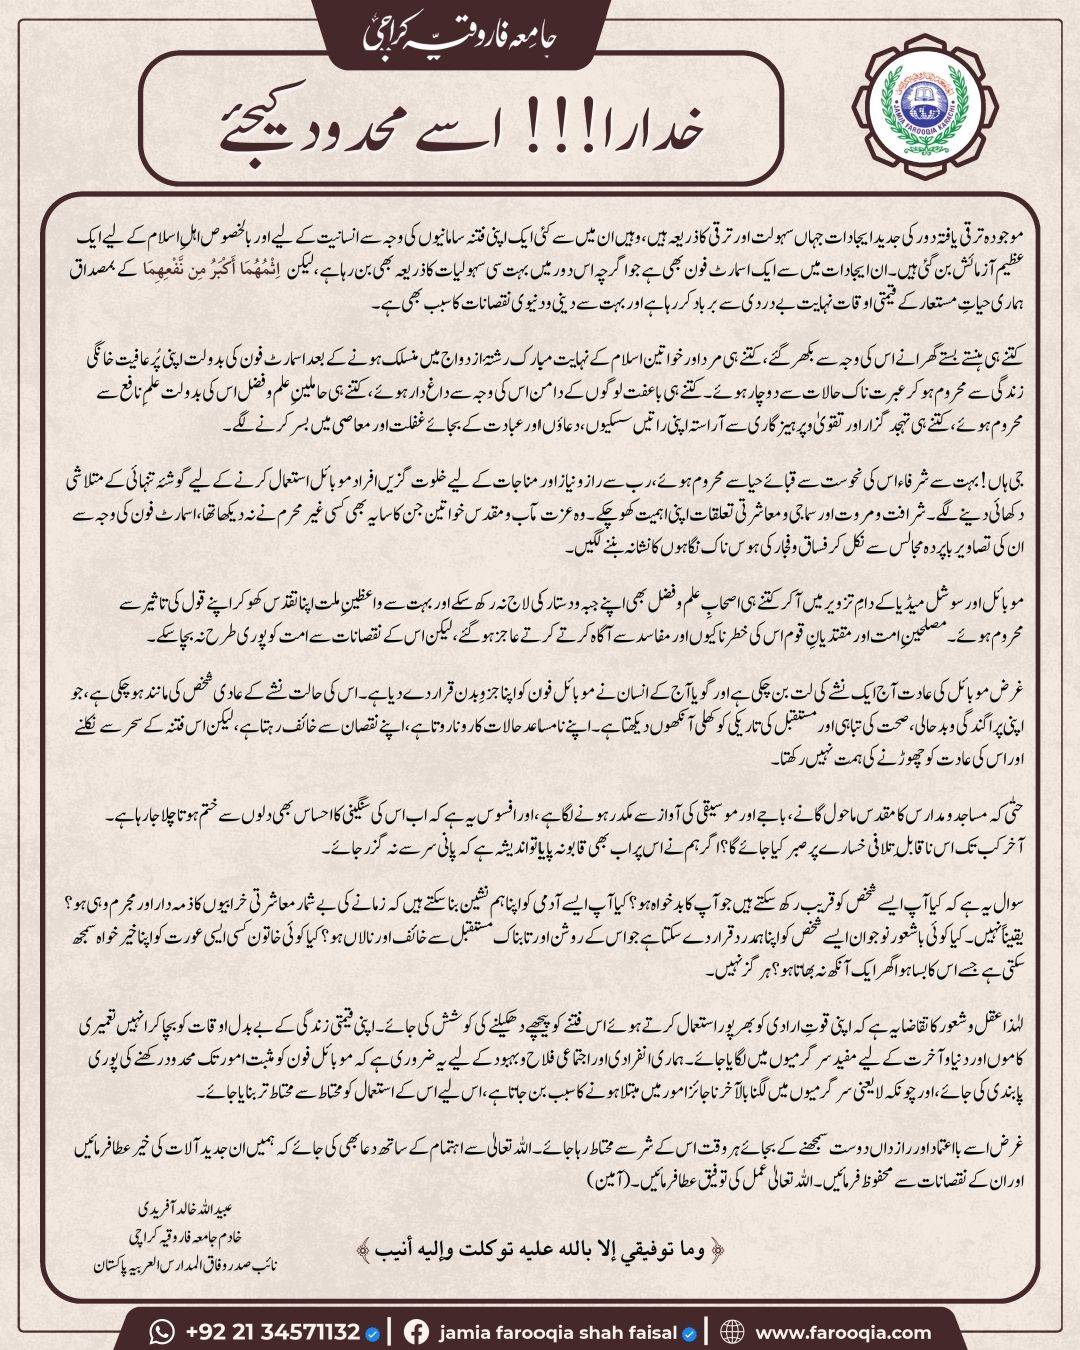 جامعہ فاروقیہ کراچی
JAMIA FAROOQIA KARACHI
خدارا!!! اسے محدود کیجئے
موجودہ ترقی یافتہ دور کی جدید ایجادات جہاں سہولت اور ترقی کا ذریعہ ہیں، وہیں ان میں سے کئی ایک اپنی فتنہ سامانیوں کی وجہ سے انسانیت کے لیے اور بالخصوص اہلِ اسلام کے لیے ایک
عظیم آزمائش بن گئی ہیں۔ ان ایجادات میں سے ایک اسمارٹ فون بھی ہے جو اگرچہ اس دور میں بہت سی سہولیات کا ذریعہ بھی بن رہا ہے، لیکن اِثْمُهُمَا أَكْبَرُ مِن نَّفْعِهِمَا کے بمصداق
ہماری حیاتِ مستعار کے قیمتی اوقات نہایت بے دردی سے برباد کر رہا ہے اور بہت سے دینی و دنیوی نقصانات کا سبب بھی ہے۔
کتنے ہی ہنستے بستے گھرانے اس کی وجہ سے بکھر گئے، کتنے ہی مرد اور خواتین اسلام کے نہایت مبارک رشتۂ ازدواج میں منسلک ہونے کے بعد اسمارٹ فون کی بدولت اپنی پُر عافیت خانگی
زندگی سے محروم ہو کر عبرت ناک حالات سے دوچار ہوئے۔ کتنے ہی باعفت لوگوں کے دامن اس کی وجہ سے داغ دار ہوئے، کتنے ہی حاملینِ علم و فضل اس کی بدولت علمِ نافع سے
محروم ہوئے، کتنے ہی تہجد گزار اور تقویٰ و پرہیز گاری سے آراستہ اپنی راتیں سسکیوں، دعاؤں اور عبادت کے بجائے غفلت اور معاصی میں بسر کرنے لگے۔
جی ہاں! بہت سے شرفاء اس کی نحوست سے قبائے حیا سے محروم ہوئے، رب سے راز و نیاز اور مناجات کے لیے خلوت گزیں افراد موبائل استعمال کرنے کے لیے گوشۂ تنہائی کے متلاشی
دکھائی دینے لگے۔ شرافت و مروت اور سماجی و معاشرتی تعلقات اپنی اہمیت کھو چکے۔ وہ عزت مآب و مقدس خواتین جن کا سایہ بھی کسی غیر محرم نے نہ دیکھا تھا، اسمارٹ فون کی وجہ سے
ان کی تصاویر باپردہ مجالس سے نکل کر فساق و فجار کی ہوس ناک نگاہوں کا نشانہ بننے لگیں۔
موبائل اور سوشل میڈیا کے دامِ تزویر میں آکر کتنے ہی اصحابِ علم و فضل بھی اپنے جبہ و دستار کی لاج نہ رکھ سکے اور بہت سے واعظینِ ملت اپنا تقدس کھو کر اپنے قول کی تاثیر سے
محروم ہوئے۔ مصلحینِ امت اور مقتدیانِ قوم اس کی خطرناکیوں اور مفاسد سے آگاہ کرتے کرتے عاجز ہو گئے، لیکن اس کے نقصانات سے امت کو پوری طرح نہ بچا سکے۔
غرض موبائل کی عادت آج ایک نشے کی لت بن چکی ہے اور گویا آج کے انسان نے موبائل فون کو اپنا جزوِ بدن قرار دے دیا ہے۔ اس کی حالت نشے کے عادی شخص کی مانند ہو چکی ہے، جو
اپنی پراگندگی و بدحالی، صحت کی تباہی اور مستقبل کی تاریکی کو کھلی آنکھوں دیکھتا ہے۔ اپنے نامساعد حالات کا رونا روتا ہے، اپنے نقصان سے خائف رہتا ہے، لیکن اس فتنہ کے سحر سے نکلنے
اور اس کی عادت کو چھوڑنے کی ہمت نہیں رکھتا۔
حتّٰی کہ مساجد و مدارس کا مقدس ماحول گانے، باجے اور موسیقی کی آواز سے مکدر ہونے لگا ہے، اور افسوس یہ ہے کہ اب اس کی سنگینی کا احساس بھی دلوں سے ختم ہوتا چلا جا رہا ہے۔
آخر کب تک اس ناقابلِ تلافی خسارے پر صبر کیا جائے گا؟ اگر ہم نے اس پر اب بھی قابو نہ پایا تو اندیشہ ہے کہ پانی سر سے نہ گزر جائے۔
سوال یہ ہے کہ کیا آپ ایسے شخص کو قریب رکھ سکتے ہیں جو آپ کا بدخواہ ہو؟ کیا آپ ایسے آدمی کو اپنا ہم نشین بنا سکتے ہیں کہ زمانے کی بے شمار معاشرتی خرابیوں کا ذمہ دار اور مجرم وہی ہو؟
یقیناً نہیں۔ کیا کوئی باشعور نوجوان ایسے شخص کو اپنا ہمدرد قرار دے سکتا ہے جو اس کے روشن اور تابناک مستقبل سے خائف اور نالاں ہو؟ کیا کوئی خاتون کسی ایسی عورت کو اپنا خیر خواہ سمجھ
سکتی ہے جسے اس کا بسا ہوا گھر ایک آنکھ نہ بھاتا ہو؟ ہر گز نہیں۔
لہٰذا عقل و شعور کا تقاضا یہ ہے کہ اپنی قوتِ ارادی کو بھرپور استعمال کرتے ہوئے اس فتنے کو پیچھے دھکیلنے کی کوشش کی جائے۔ اپنی قیمتی زندگی کے بے بدل اوقات کو بچا کر انہیں تعمیری
کاموں اور دنیا و آخرت کے لیے مفید سرگرمیوں میں لگایا جائے۔ ہماری انفرادی اور اجتماعی فلاح و بہبود کے لیے یہ ضروری ہے کہ موبائل فون کو مثبت امور تک محدود رکھنے کی پوری
پابندی کی جائے، اور چونکہ لایعنی سرگرمیوں میں لگنا بالآخر ناجائز امور میں مبتلا ہونے کا سبب بن جاتا ہے، اس لیے اس کے استعمال کو محتاط سے محتاط تر بنایا جائے۔
غرض اسے بااعتماد اور رازداں دوست سمجھنے کے بجائے ہر وقت اس کے شر سے محتاط رہا جائے۔ اللہ تعالیٰ سے اہتمام کے ساتھ دعا بھی کی جائے کہ ہمیں ان جدید آلات کی خیر عطا فرمائیں
اور ان کے نقصانات سے محفوظ فرمائیں۔ اللہ تعالیٰ عمل کی توفیق عطا فرمائیں۔ (آمین)
عبید اللہ خالد آفریدی
خادم جامعہ فاروقیہ کراچی
نائب صدر وفاق المدارس العربیہ پاکستان
﴿ وما توفيقي إلا بالله عليه توكلت وإليه أنيب ﴾
+92 21 34571132 | jamia farooqia shah faisal | www.farooqia.com